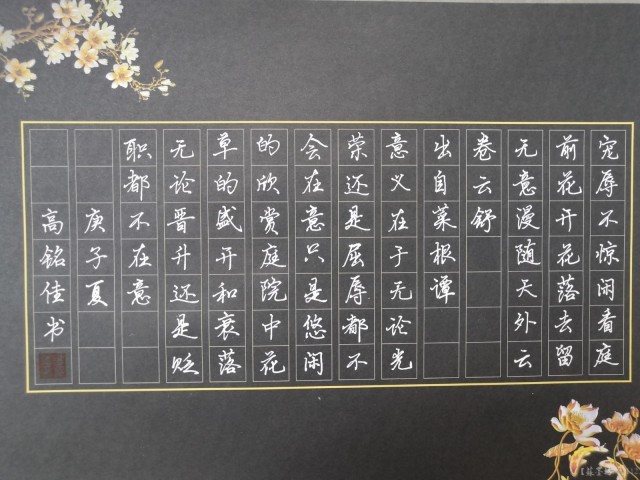 宠辱不惊闲看庭
前花开花落去留
无意漫随天外云
卷云舒
出自菜根谭
意义在于无论光
荣还是屈辱都不
会在意只是悠闲
的欣赏庭院中花
草的盛开和衰落
无论晋升还是贬
职都不在意
庚子夏
高铭佳书